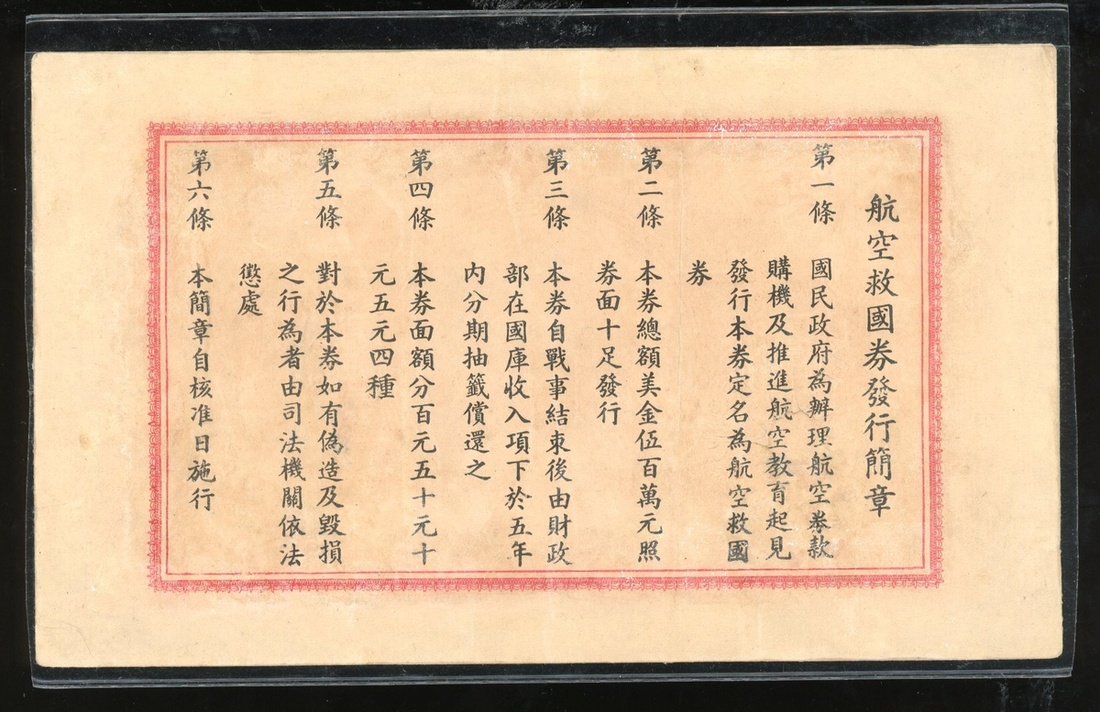 航空救國券發行簡章
第一條 國民政府為辦理航空券款
購機及推進航空教育起見
發行本券定名為航空救國
券
第二條 本券總額美金伍百萬元照
券面十足發行
第三條 本券自戰事結束後由財政
部在國庫收入項下於五年
內分期抽籤償還之
第四條 本券面額分百元五十元十
元五元四種
第五條 對於本券如有偽造及毀損
之行為者由司法機關依法
懲處
第六條 本簡章自核准日施行